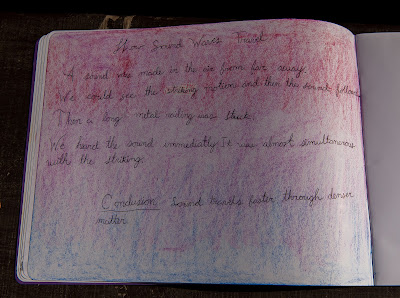 How Sound Waves Travel
A sound was made in the air from far away.
We could see the striking motion and then the sound followed
Then a long metal railing was struck.
We heard the sound immediately. It was almost simultaneous
with the striking.
Conclusion: Sound travels faster through denser
matter.